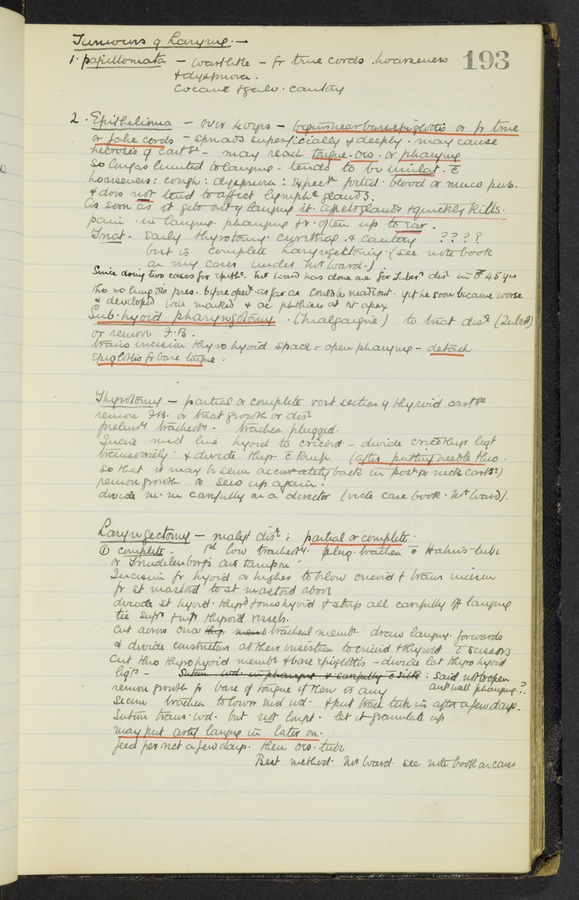 Tumours of Larynx.—
193
1. papillomata – wartlike – fr true cords. hoarseness
+ dyspnoea.
Cocaine + galv. cautery
2. Epithelioma – over 40 yrs – begins near base epiglottis or fr true
or false cords – spreads superficially & deeply. may cause
necrosis of cart – may reach tongue. oes. or pharynx
So long as limited to larynx – tends to be unilat. c̄
hoarseness: cough: dyspnoea: foetid. blood or muco pus.
& does not tend to affect lymphc glands.
As soon as it gets out of larynx it affects glands & quickly kills.
pain. in larynx pharynx &c. often up to ear.
Treat. Early thyrotomy. curetting & cautery ????
best is complete Laryngectomy. (see note book
on my case under Mr Ward.)
Since doing two cases for epith. Mr Ward has done one for dis in 45 yrs
tho no lung dis pres. before opn as far as could be made out. yet he soon became worse
& developed well marked & ac phthisis at apex
Sub-hyoid pharyngotomy. (Malgaigne) to treat dis
or remove F.B.
trans incision thyro hyoid space = open pharynx – detach
epiglottis fr base tongue.
Thyrotomy – partial or complete vert section of thyroid cart
remove F.B. or treat growth or dis
prelim trachy – trachea plugged.
Incise mid line hyoid to cricoid – divide cricothyr ligt
transversely & divide thyr c̄ (after putting needle thro.
so that it may be seen accurately back in post or neck cart)
remove growth & sew up again.
divide m. m carefully on a director (vide case book. Mr Ward).
Laryngectomy – malig dis: partial or complete.
① complete – low trachy. plug trachea c̄ Hahn's tube
or Trendelenberg's air tampon
Incision fr hyoid or higher to below cricoid & trans incision
fr st mastoid to st mastoid above
divide st hyoid. thyr & omohyoid & strip all carefully off larynx
tie supr & infr thyroid vessels.
cut across crico tracheal memb. draw larynx forwards
& divide constrictors at their insertion to cricoid & thyroid c̄ scissors
Cut thro thyrohyoid memb & base epiglottis – divide lat thyro hyoid
ligt – Suture wd. in pharynx & carefully c̄ silk. said not to open
ant wall pharynx?
remove growth fr base of tongue if there is any
Secure trachea to lower end wd. & put trach tube in after a few days.
Suture trans. wd. but not longit. let it granulate up
may put artif larynx in later on.
feed per rect a few days. then oes. tube
Best method. Mr Ward. see note book on case